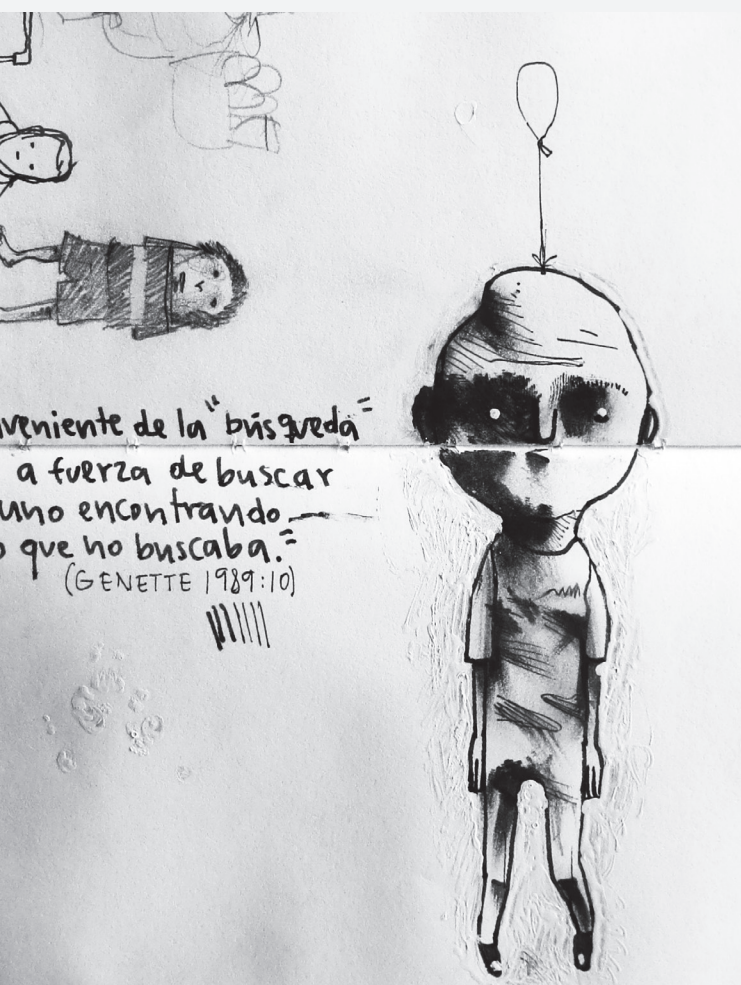 veniente de la "búsqueda"
a fuerza de buscar
uno encontrando
que no buscaba."
(GENETTE 1989:10)